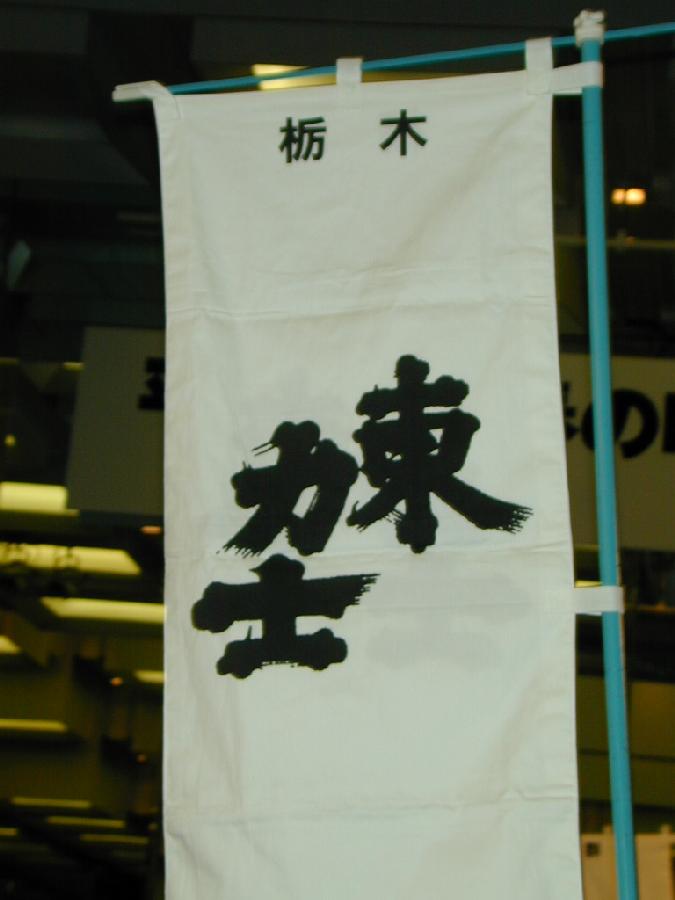 栃木
東
力士
の